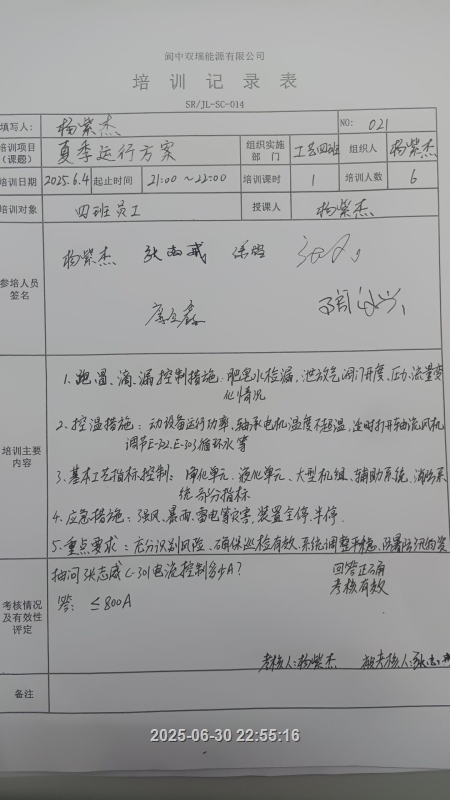 阆中双瑞能源有限公司
培训记录表
SR/JL-SC-014
填写人: 杨紫杰 NO: 021
培训项目(课题) 夏季运行方案 组织实施部门 工艺四班 组织人 杨紫杰
培训日期 2025.6.4 起止时间 21:00 ~22:00 培训课时 1 培训人数 6
培训对象 四班员工 授课人 杨紫杰
参培人员签名
杨紫杰 张志威
培训主要内容
1、跑、冒、滴、漏控制措施:肥皂水检漏,泄放气阀门开度、压力、流量变
化情况
2、控温措施:动设备运行功率、轴承电机温度不超温,适时打开轴流风机
调节E-322.E-303循环水等
3、基本工艺指标控制:净化单元、液化单元、大型机组、辅助系统、消防系
统部分指标
4、应急措施:强风、暴雨、雷电等灾害,装置全停、半停.
5、重点要求:充分识别风险、确保巡检有效、系统调整平稳、防暑防汛
考核情况及有效性评定
抽问张志威C-301电流控制多少A?
答: ≤800A
回答正确
考核有效
考核人:杨紫杰 被考核人:张志威
备注
2025-06-30 22:55:16